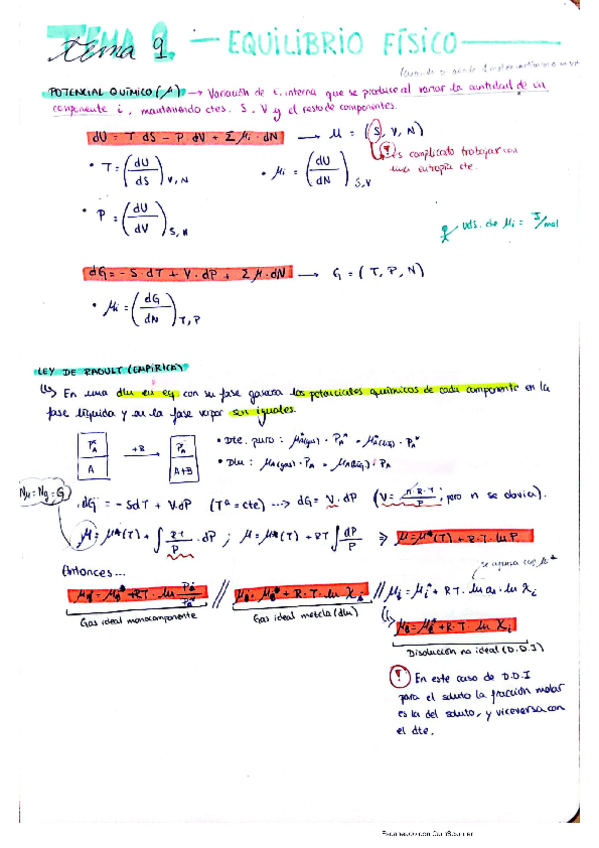 TEMA 1. — EQUILIBRIO FÍSICO —
Tema 9
POTENCIAL QUÍMICO (μ) → Variación de E. interna que se produce al variar la cantidad de un
componente i, manteniendo ctes. S, V y el resto de componentes.
dU = T dS - P dV + Σμi · dN → U = (S, V, N)
! es complicado trabajar con
una entropía cte.
• T = (dU/dS) V,N • μi = (dU/dN) S,V
• P = (dU/dV) S,N
uds. de μi = J/mol
dG = -S·dT + V·dP + Σμ·dN → G = (T, P, N)
• μi = (dG/dN) T,P
LEY DE RAOULT (EMPÍRICA)
↳ En una dlu en eq con su fase gaseosa los potenciales químicos de cada componente en la
fase líquida y en la fase vapor son iguales.
P*A +B PA
A A+B
• Dlu:
dG = -SdT + VdP (Tª = cte) ---> dG = V·dP (V = n·R·T/P; pero n se obvia).
μ = μ*(T) + ∫ RT/P · dP ; μ = μ*(T) + RT ∫ dP/P ⇒ μ = μ*(T) + R·T·ln P
Entonces...
// // μi = μi* + RT · ln ai · ln xi
Gas ideal monocomponente
Gas ideal mezcla (dlu)
Disolución no ideal (D.D.I)
! En este caso de D.D.I
para el soluto la fracción molar
es la del soluto, y viceversa con
el dte.